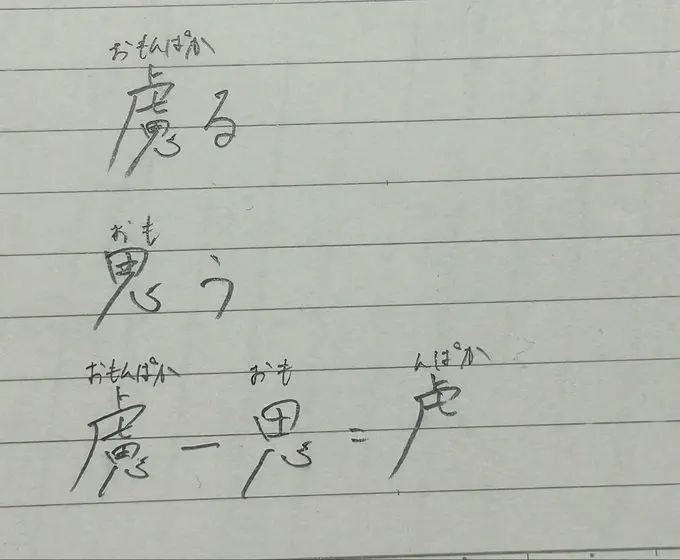 おもんぱか
慮る
おも
思う
おもんぱか おも んぱか
慮 − 思 = 虍